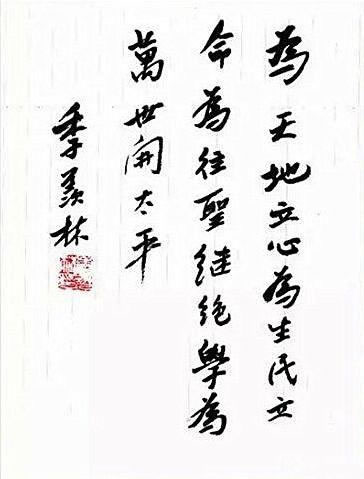 為天地立心為生民立
命為往聖继绝學為
萬世開太平
季羡林